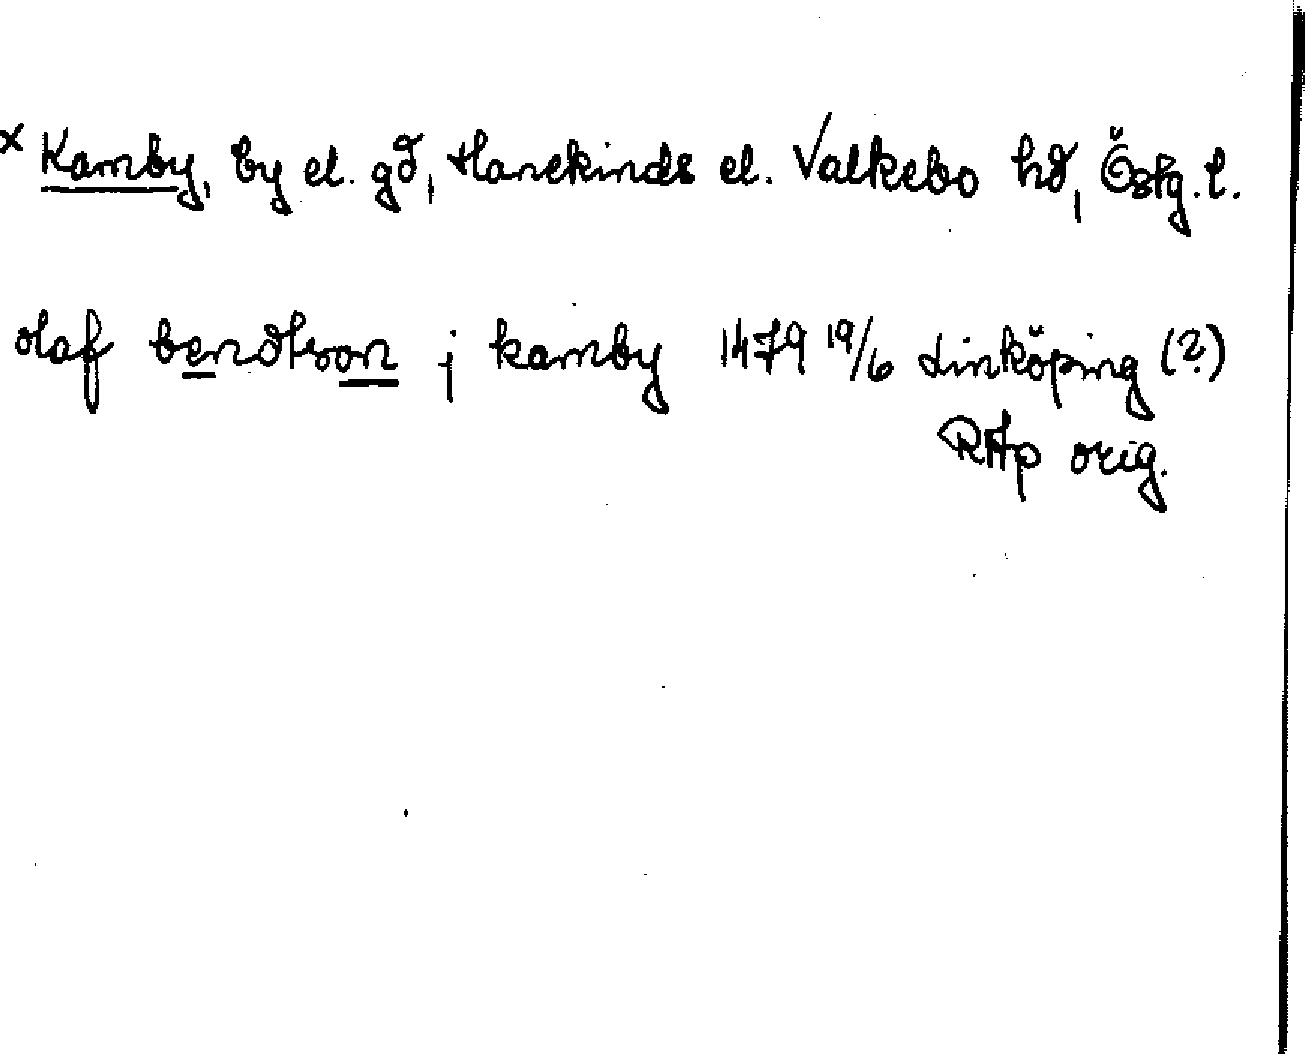 x Kamby, by el. gd, Hanekinds el. Valkebo hd, Östg. l.
olaf bendtson j kamby 1479 19/6 Linköping (?)
RAp orig.